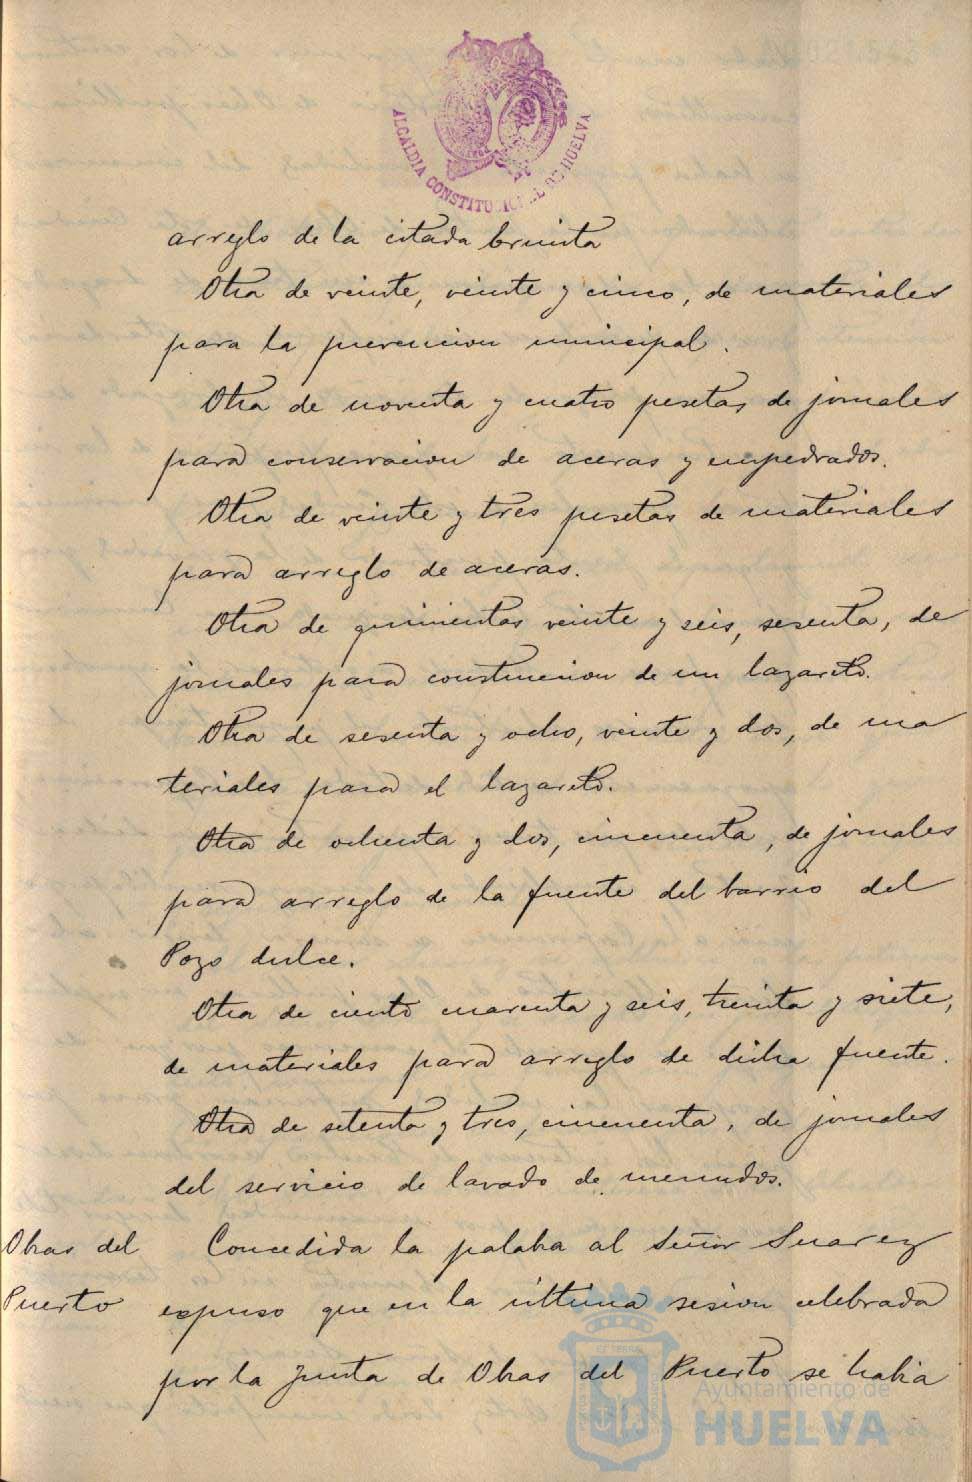 ALCALDIA CONSTITUCIONAL DE HUELVA
arreglo de la citada
Otra de veinte, veinte y cinco, de materiales
para la prevencion municipal.
Otra de noventa y cuatro pesetas de jornales
para conservacion de aceras y empedrados.
Otra de veinte y tres pesetas de materiales
para arreglo de aceras.
Otra de quinientas veinte y seis, sesenta, de
jornales para construccion de un lazareto.
Otra de sesenta y ocho, veinte y dos, de ma
teriales para el lazareto.
Otra de ochenta y dos, cincuenta, de jornales
para arreglo de la fuente del barrio del
Pozo dulce.
Otra de ciento cuarenta y seis, treinta y siete,
de materiales para arreglo de dicha fuente.
Otra de setenta y tres, cincuenta, de jornales
del servicio de lavado de menudos.
Obras del
Puerto
Concedida la palabra al Señor Suarez
expuso que en la última sesion celebrada
por la Junta de Obras del Puerto se habia
Ayuntamiento de
HUELVA